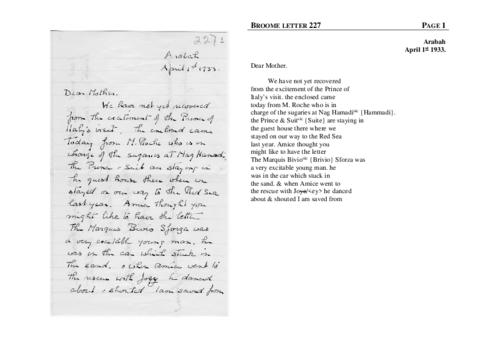 2271
Arabah
April 1st 1933.
Dear Mother.
We have not yet recovered
from the excitement of the Prince of
Italy's visit. The enclosed came
today from M. Roche who is in
charge of the sugaries at Nag Hamadi,
the Prince & Suit are staying in
the guest house there where we
stayed on our way to the Red Sea
last year. Amice thought you
might like to have the letter
The Marquis Bivio Sforza was
a very excitable young man, he
was in the car which stuck in
the sand, & when Amice went to
the rescue with he danced
about & shouted I am saved from
BROOME LETTER 227 PAGE 1
Arabah
April 1st 1933.
Dear Mother.
We have not yet recovered
from the excitement of the Prince of
Italy's visit. the enclosed came
today from M. Roche who is in
charge of the sugaries at Nag Hamadi sic {Hammadi}.
the Prince & Suit sic {Suite} are staying in
the guest house there where we
stayed on our way to the Red Sea
last year. Amice thought you
might like to have the letter
The Marquis Bivio sic {Brivio} Sforza was
a very excitable young man. he
was in the car which stuck in
the sand. & when Amice went to
the rescue with he danced
about & shouted I am saved from